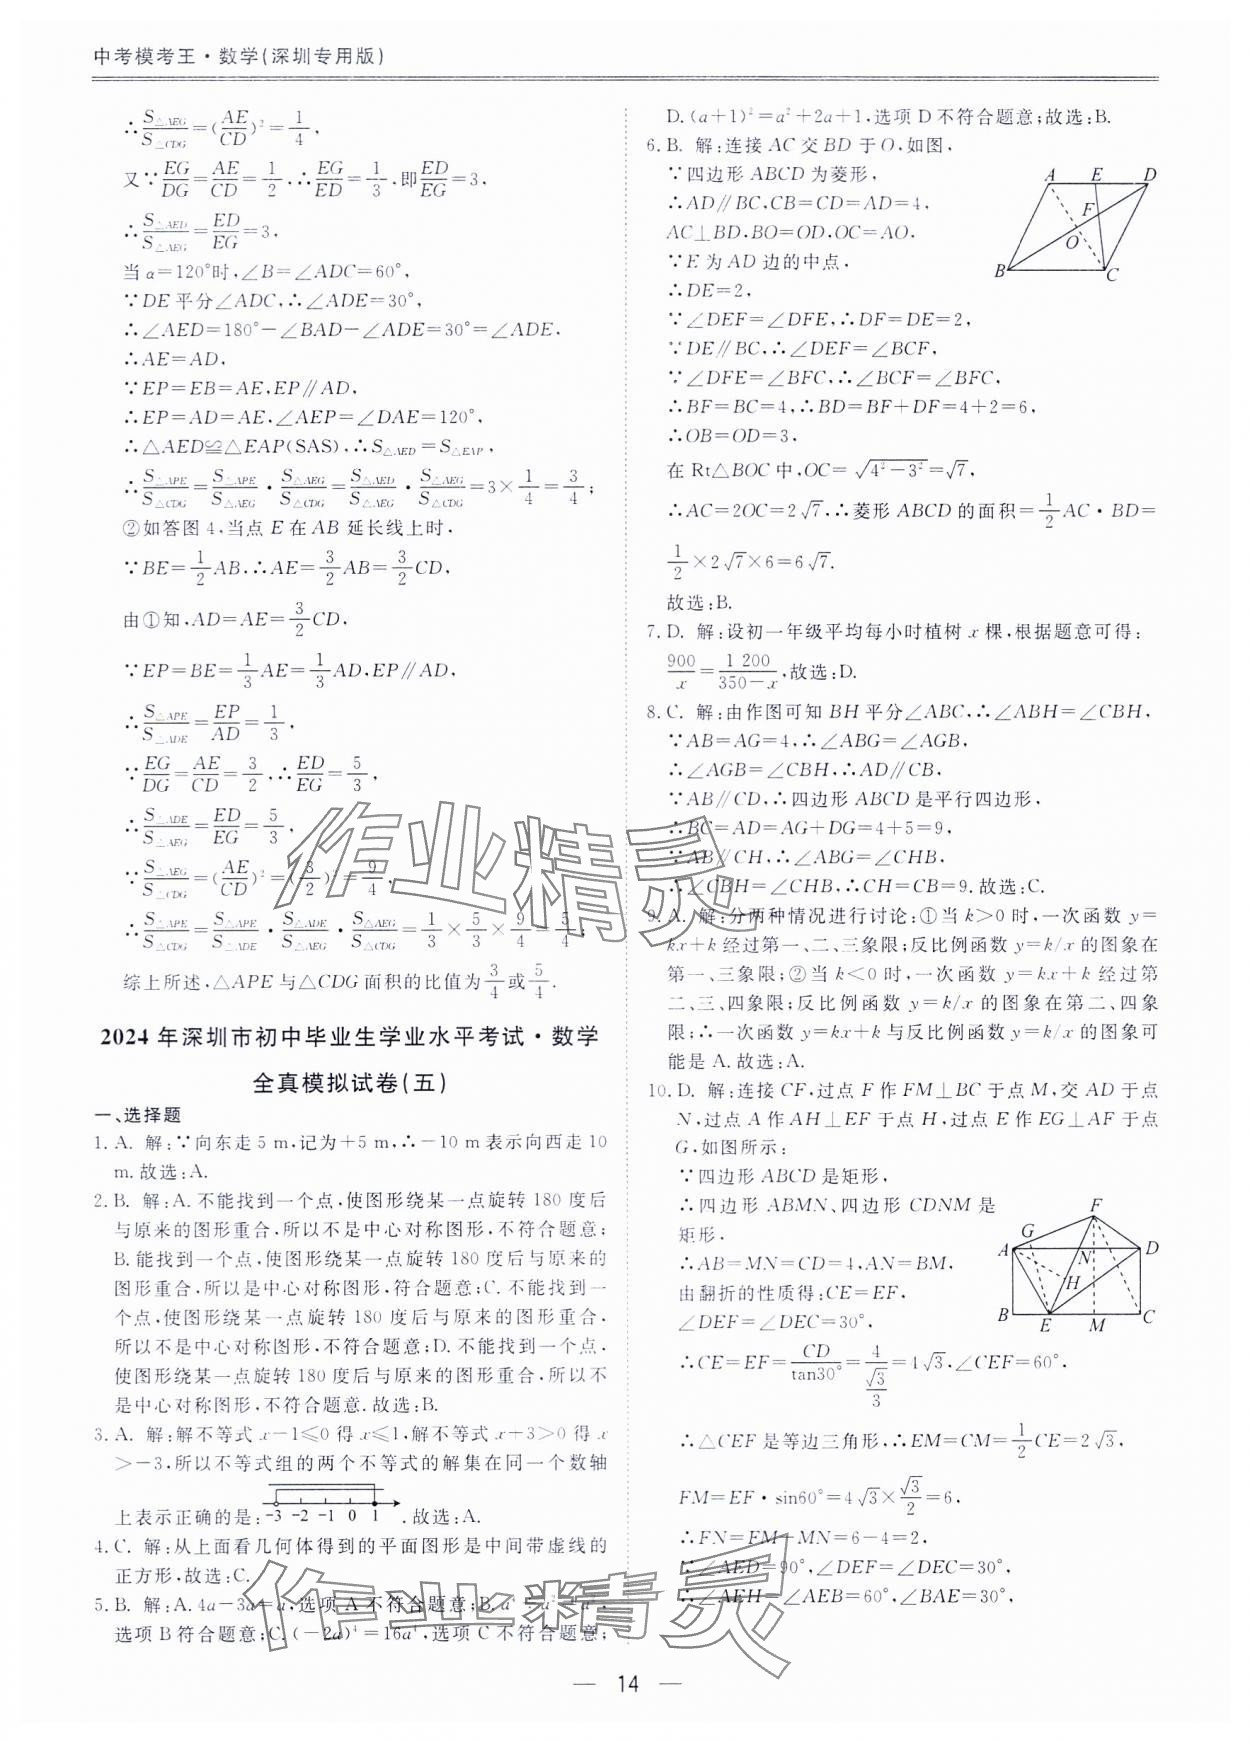 中考模考王·数学(深圳专用版)
∴S△AEG/S△CDG=(AE/CD)²=1/4,
又∵EG/DG=AE/CD=1/2,∴EG/ED=1/3,即ED/EG=3,
∴S△AED/S△AEG=ED/EG=3,
当α=120°时,∠B=∠ADC=60°,
∵DE平分∠ADC,∴∠ADE=30°,
∴∠AED=180°-∠BAD-∠ADE=30°=∠ADE,
∴AE=AD,
∵EP=EB=AE,EP∥AD,
∴EP=AD=AE,∠AEP=∠DAE=120°,
∴△AED≌△EAP(SAS),∴S△AED=S△EAP,
∴S△APE/S△CDG=S△APE/S△AEG·S△AEG/S△CDG=S△AED/S△AEG·S△AEG/S△CDG=3×1/4=3/4;
②如答图4,当点E在AB延长线上时,
∵BE=1/2AB,∴AE=3/2AB=3/2CD,
由①知,AD=AE=3/2CD,
∵EP=BE=1/3AE=1/3AD,EP∥AD,
∴S△APE/S△ADE=EP/AD=1/3,
∵EG/DG=AE/CD=3/2,∴ED/EG=5/3,
∴S△ADE/S△AEG=ED/EG=5/3,
∵S△AEG/S△CDG=(AE/CD)²=(3/2)²=9/4,
∴S△APE/S△CDG=S△APE/S△ADE·S△ADE/S△AEG·S△AEG/S△CDG=1/3×5/3×9/4=5/4;
综上所述,△APE与△CDG面积的比值为3/4或5/4.
2024年深圳市初中毕业生学业水平考试·数学
全真模拟试卷(五)
一、选择题
1.A. 解:∵向东走5 m,记为+5 m,∴-10 m表示向西走10
m.故选:A.
2.B. 解:A.不能找到一个点,使图形绕某一点旋转180度后
与原来的图形重合,所以不是中心对称图形,不符合题意;
B.能找到一个点,使图形绕某一点旋转180度后与原来的
图形重合,所以是中心对称图形,符合题意;C.不能找到一
个点,使图形绕某一点旋转180度后与原来的图形重合,
所以不是中心对称图形,不符合题意;D.不能找到一个点,
使图形绕某一点旋转180度后与原来的图形重合,所以不
是中心对称图形,不符合题意.故选:B.
3.A. 解:解不等式x-1≤0得x≤1,解不等式x+3>0得x
>-3,所以不等式组的两个不等式的解集在同一个数轴
上表示正确的是:-3 -2 -1 0 1.故选:A.
4.C. 解:从上面看几何体得到的平面图形是中间带虚线的
正方形,故选:C.
5.B. 解:A.4a-3a=a,选项A不符合题意;B.
选项B符合题意;C.(-2a)⁴=16a⁴,选项C不符合题意;
D.(a+1)²=a²+2a+1,选项D不符合题意;故选:B.
6.B. 解:连接AC交BD于O,如图,
∵四边形ABCD为菱形,
∴AD∥BC,CB=CD=AD=4,
AC⊥BD,BO=OD,OC=AO,
∵E为AD边的中点,
∴DE=2,
∵∠DEF=∠DFE,∴DF=DE=2,
∵DE∥BC,∴∠DEF=∠BCF,
∵∠DFE=∠BFC,∴∠BCF=∠BFC,
∴BF=BC=4,∴BD=BF+DF=4+2=6,
∴OB=OD=3,
在Rt△BOC中,OC=√(4²-3²)=√7,
∴AC=2OC=2√7,∴菱形ABCD的面积=1/2AC·BD=
1/2×2√7×6=6√7.
故选:B.
A E D
F
O
B C
7.D. 解:设初一年级平均每小时植树x棵,根据题意可得:
900/x=1 200/(350-x),故选:D.
8.C. 解:由作图可知BH平分∠ABC,∴∠ABH=∠CBH,
∵AB=AG=4,∴∠ABG=∠AGB,
∴∠AGB=∠CBH,∴AD∥CB,
∵AB∥CD,∴四边形ABCD是平行四边形,
∴BC=AD=AG+DG=4+5=9,
∵AB∥CH,∴∠ABG=∠CHB,
∴∠CBH=∠CHB,∴CH=CB=9.故选:C.
9.A. 解:分两种情况进行讨论:①当k>0时,一次函数y=
kx+k经过第一、二、三象限;反比例函数y=k/x的图象在
第一、三象限;②当k<0时,一次函数y=kx+k经过第
二、三、四象限;反比例函数y=k/x的图象在第二、四象
限;∴一次函数y=kx+k与反比例函数y=k/x的图象可
能是A.故选:A.
10.D. 解:连接CF,过点F作FM⊥BC于点M,交AD于点
N,过点A作AH⊥EF于点H,过点E作EG⊥AF于点
G,如图所示:
∵四边形ABCD是矩形,
∴四边形ABMN、四边形CDNM是
矩形,
∴AB=MN=CD=4,AN=BM,
由翻折的性质得:CE=EF,
∠DEF=∠DEC=30°,
∴CE=EF=CD/tan30°=4/(√3/3)=4√3,∠CEF=60°,
∴△CEF是等边三角形,∴EM=CM=1/2CE=2√3,
FM=EF·sin60°=4√3×√3/2=6,
∴FN=FM-MN=6-4=2,
∵∠AED=90°,∠DEF=∠DEC=30°,
∴∠AEH=∠AEB=60°,∠BAE=30°,
F
G
A N D
H
B E M C
作业精灵
作业精灵
— 14 —